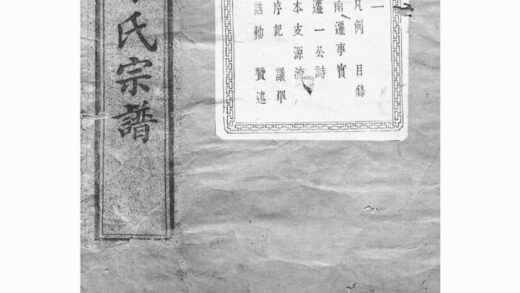 一
凡例 目錄
南遷事實
一公詩
本支源流
序記 議單
誥勅 贊述
氏宗譜